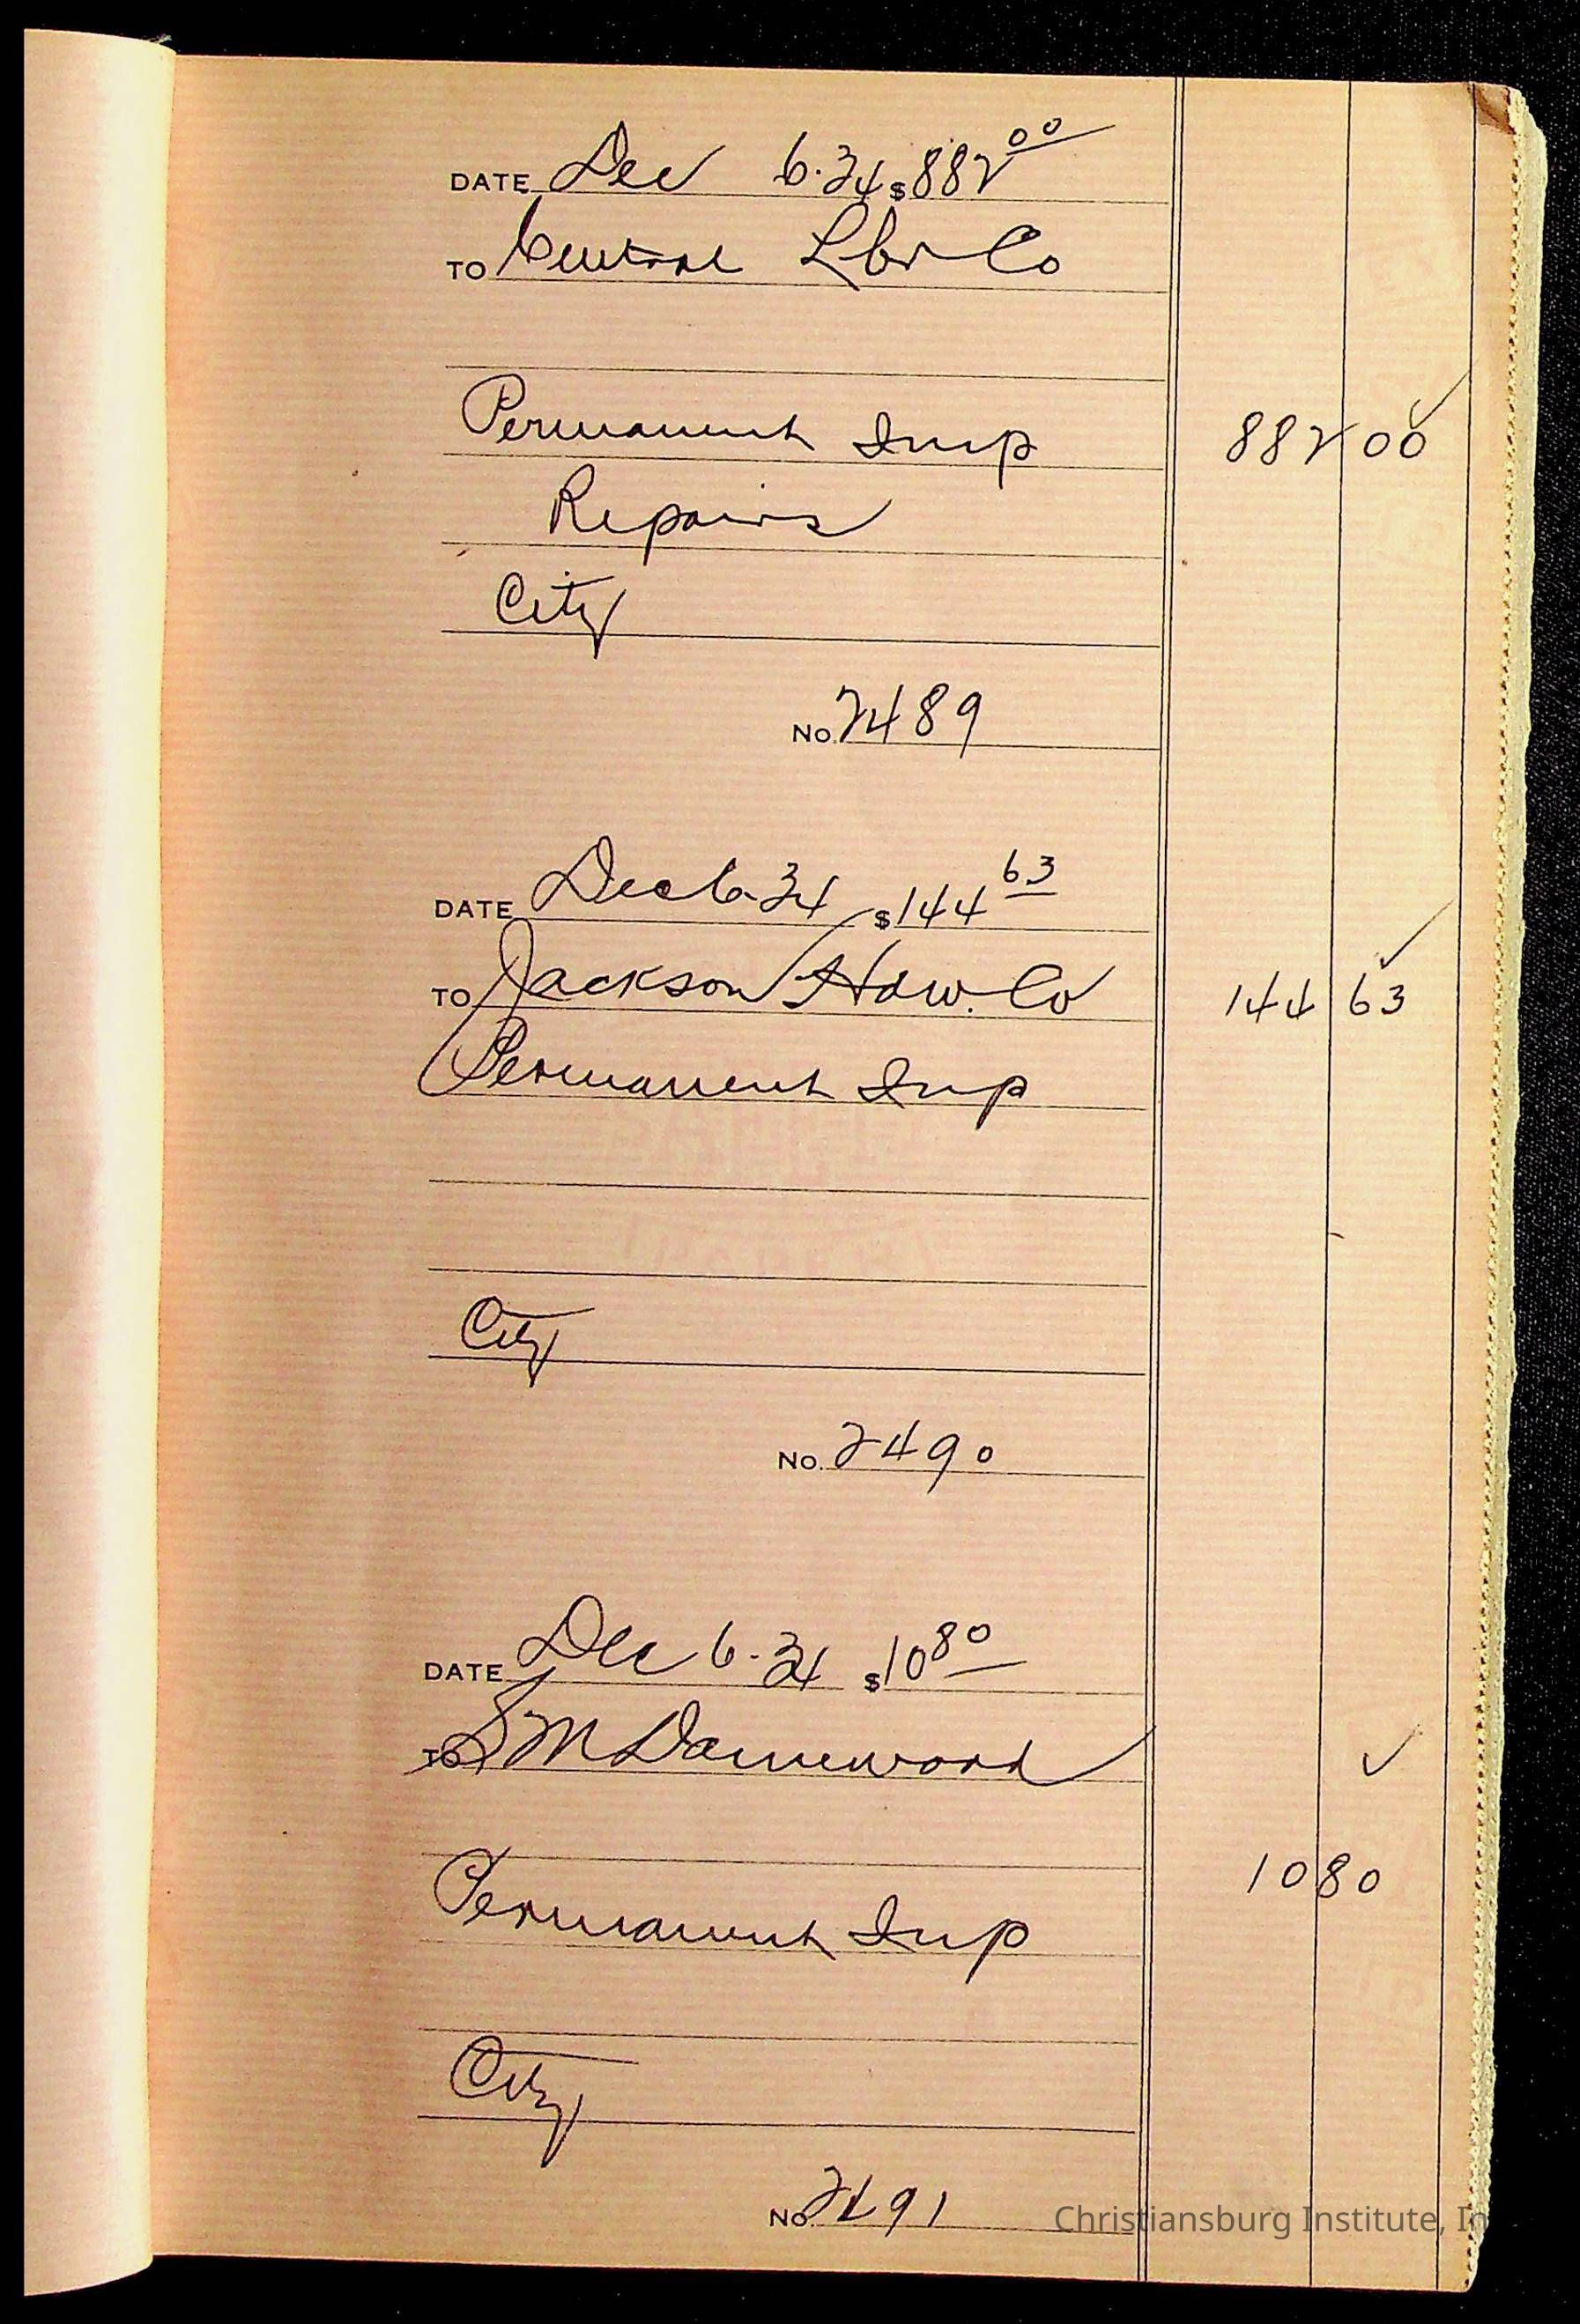 DATE Dec 6-34 $ 882 00
TO Central Lbr Co
Permanent Imp 882 00 ✓
Repairs
City
No. 2489
DATE Dec 6-34 $ 144 63
TO Jackson Hdw. Co 144 63 ✓
Permanent Imp
City
No. 2490
DATE Dec 6-34 $ 10 80
TO S M Damewood ✓
10 80
Permanent Imp
City
No. 2491
Christiansburg Institute, In